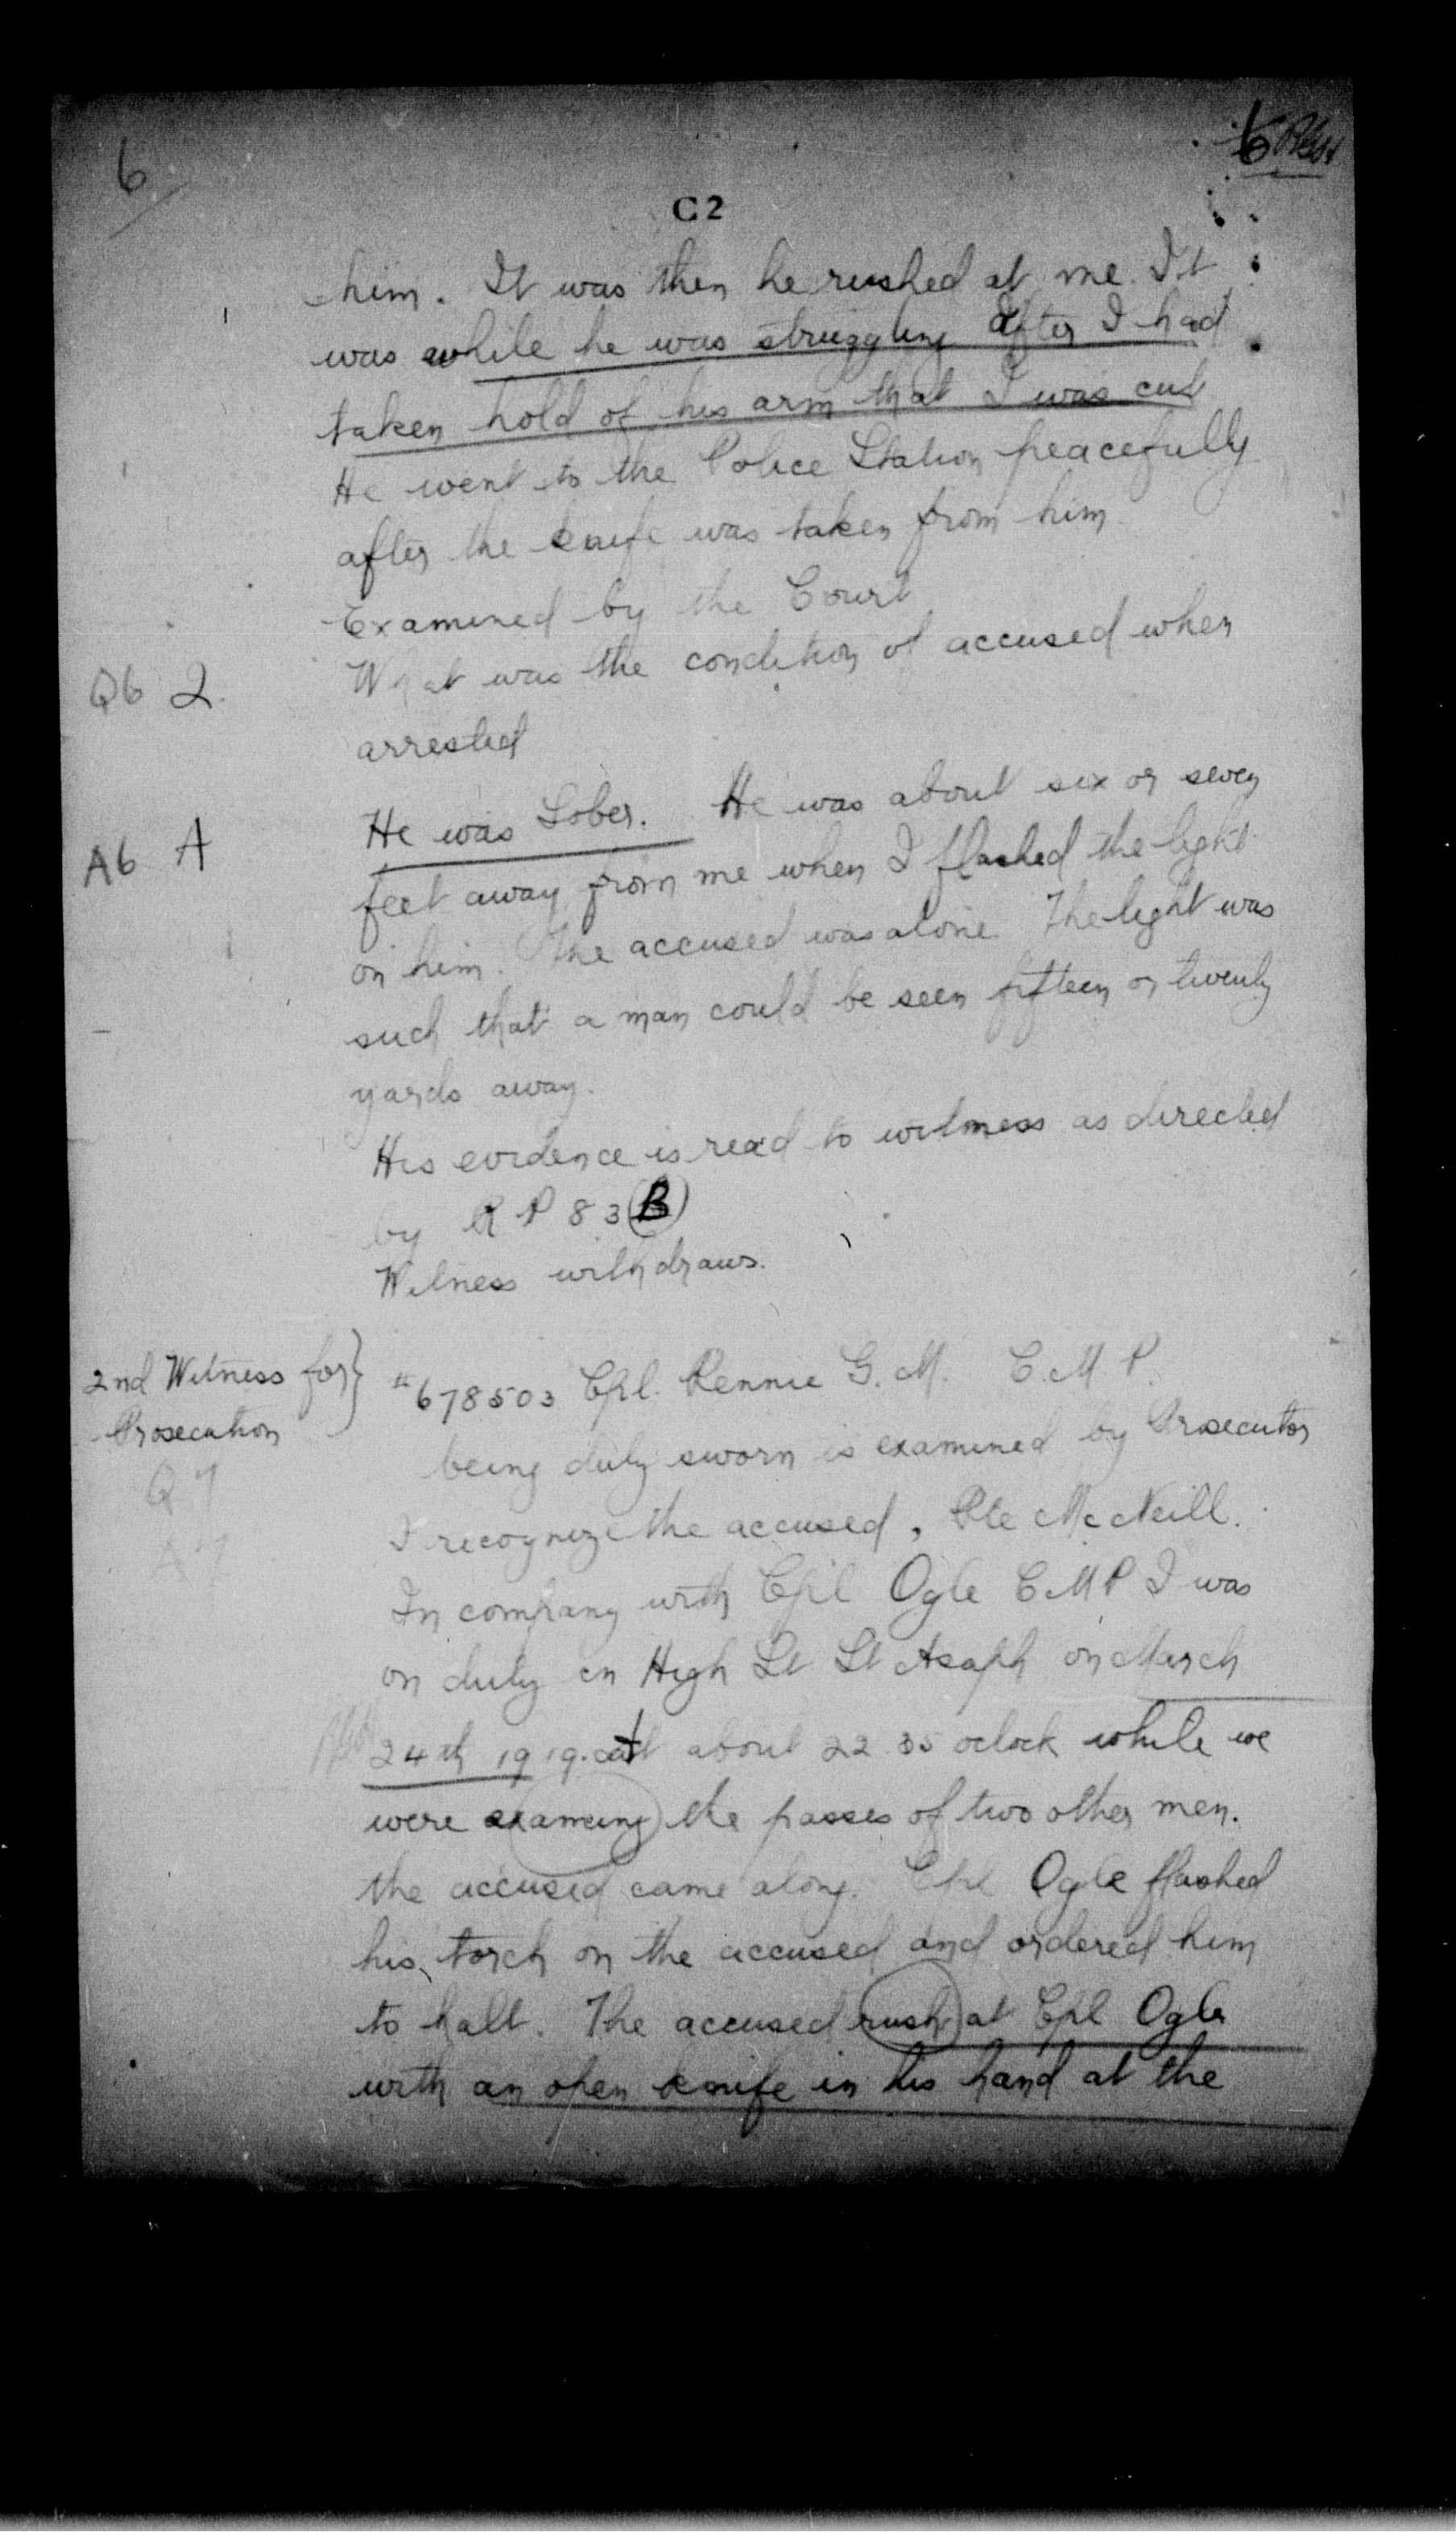 6
6
C2
him. It was then he rushed at me. It
was while he was struggling after I had
taken hold of his arm that I was cut
He went to the Police Station peacefully
after the knife was taken from him.
Examined by the Court
Q6 Q. What was the condition of accused when
arrested
A6 A He was Sober. He was about six or seven
feet away from me when I flashed the light
on him. The accused was alone. The light was
such that a man could be seen fifteen or twenty
yards away.
His evidence is read to witness as directed
by R P 83 (B)
Witness withdraws.
2nd Witness for } # 678503 Cpl. Rennie G. M. C. M. P.
Prosecution
being duly sworn is examined by Prosecutor
Q 7
I recognize the accused, Pte McNeill.
A 7
In company with Cpl Ogle C M P I was
on duty in High St St Asaph on March
24th 1919. at about 22 35 oclock while we
were examing the passes of two other men.
the accused came along. Cpl Ogle flashed
his torch on the accused and ordered him
to halt. The accused rush at Cpl Ogle
with an open knife in his hand at the